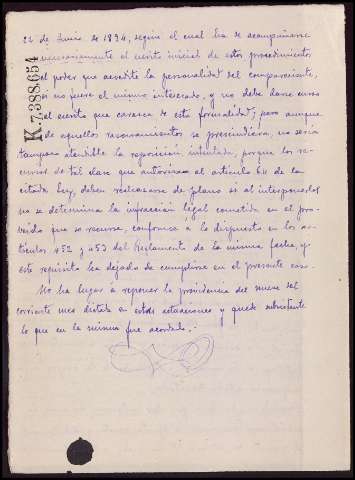 22 de Junio de 1894, según el cual ha de acompañarse
necesariamente al escrito inicial de estos procedimientos
el poder que acredite la personalidad del compareciente,
si no fuere el mismo interesado, y no debe darse curso
al escrito que carezca de esta formalidad; pero aunque
de aquellos razonamientos se prescindiera, no sería
tampoco atendible la reposición intentada, porque los re-
cursos de tal clase que autoriza el artículo 64 de la
citada Ley, deben rechazarse de plano si al interponerlos
no se determina la infracción legal cometida en el pro-
veído que se recurre, conforme a lo dispuesto en los ar-
tículos 452 y 453 del Reglamento de la misma fecha, y
este requisito ha dejado de cumplirse en el presente caso.
No ha lugar a reponer la providencia del nueve del
corriente mes dictada en estas actuaciones y quede subsistente
lo que en la misma fue acordado.
K.7.388.654